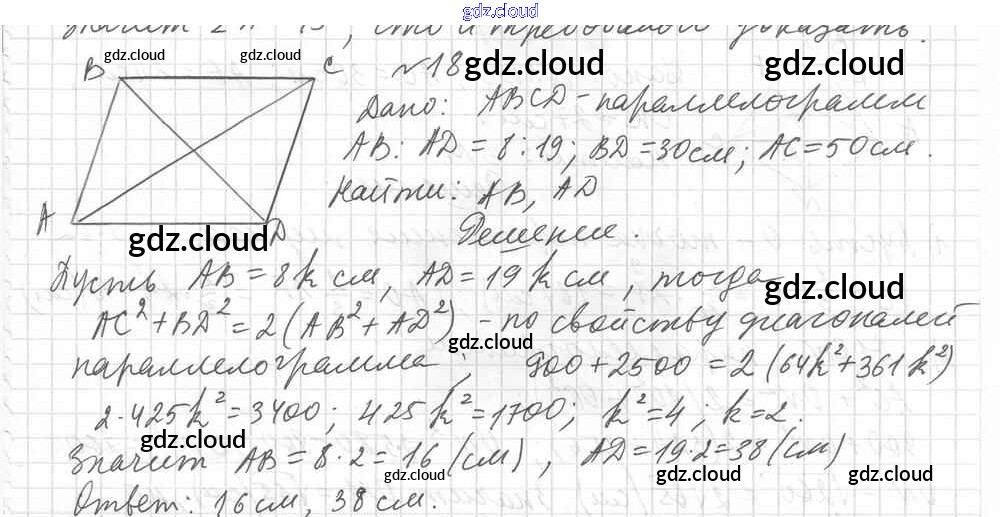 gdz.cloud
значит
, что и требовалось доказать.
gdz.cloud
gdz.cloud
B
C
№18
gdz.cloud
gdz.cloud
Дано: ABCD - параллелограмм
AB : AD = 8 : 19; BD = 30 см; AC = 50 см.
Найти: AB, AD
A
D
gdz.cloud
Решение.
Пусть AB = 8k см, AD = 19k см, тогда
gdz.cloud
AC² + BD² = 2(AB² + AD²) - по свойству диагоналей
gdz.cloud
параллелограмма; 900 + 2500 = 2(64k² + 361k²)
2·425k² = 3400; 425k² = 1700; k² = 4; k = 2.
gdz.cloud
gdz.cloud
Значит AB = 8·2 = 16 (см), AD = 19·2 = 38 (см)
gdz.cloud
gdz.cloud
gdz.cloud
Ответ: 16 см, 38 см.